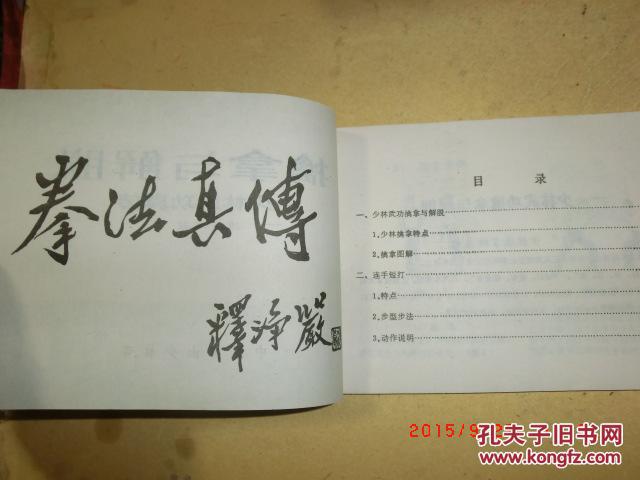 拳法真傳
釋淨嚴
目 录
一、少林武功擒拿与解脱
1.少林擒拿特点
2.擒拿图解
二、连手短打
1.特点
2.步型步法
3.动作说明
2015/9/2
孔夫子旧书网
www.kongfz.com